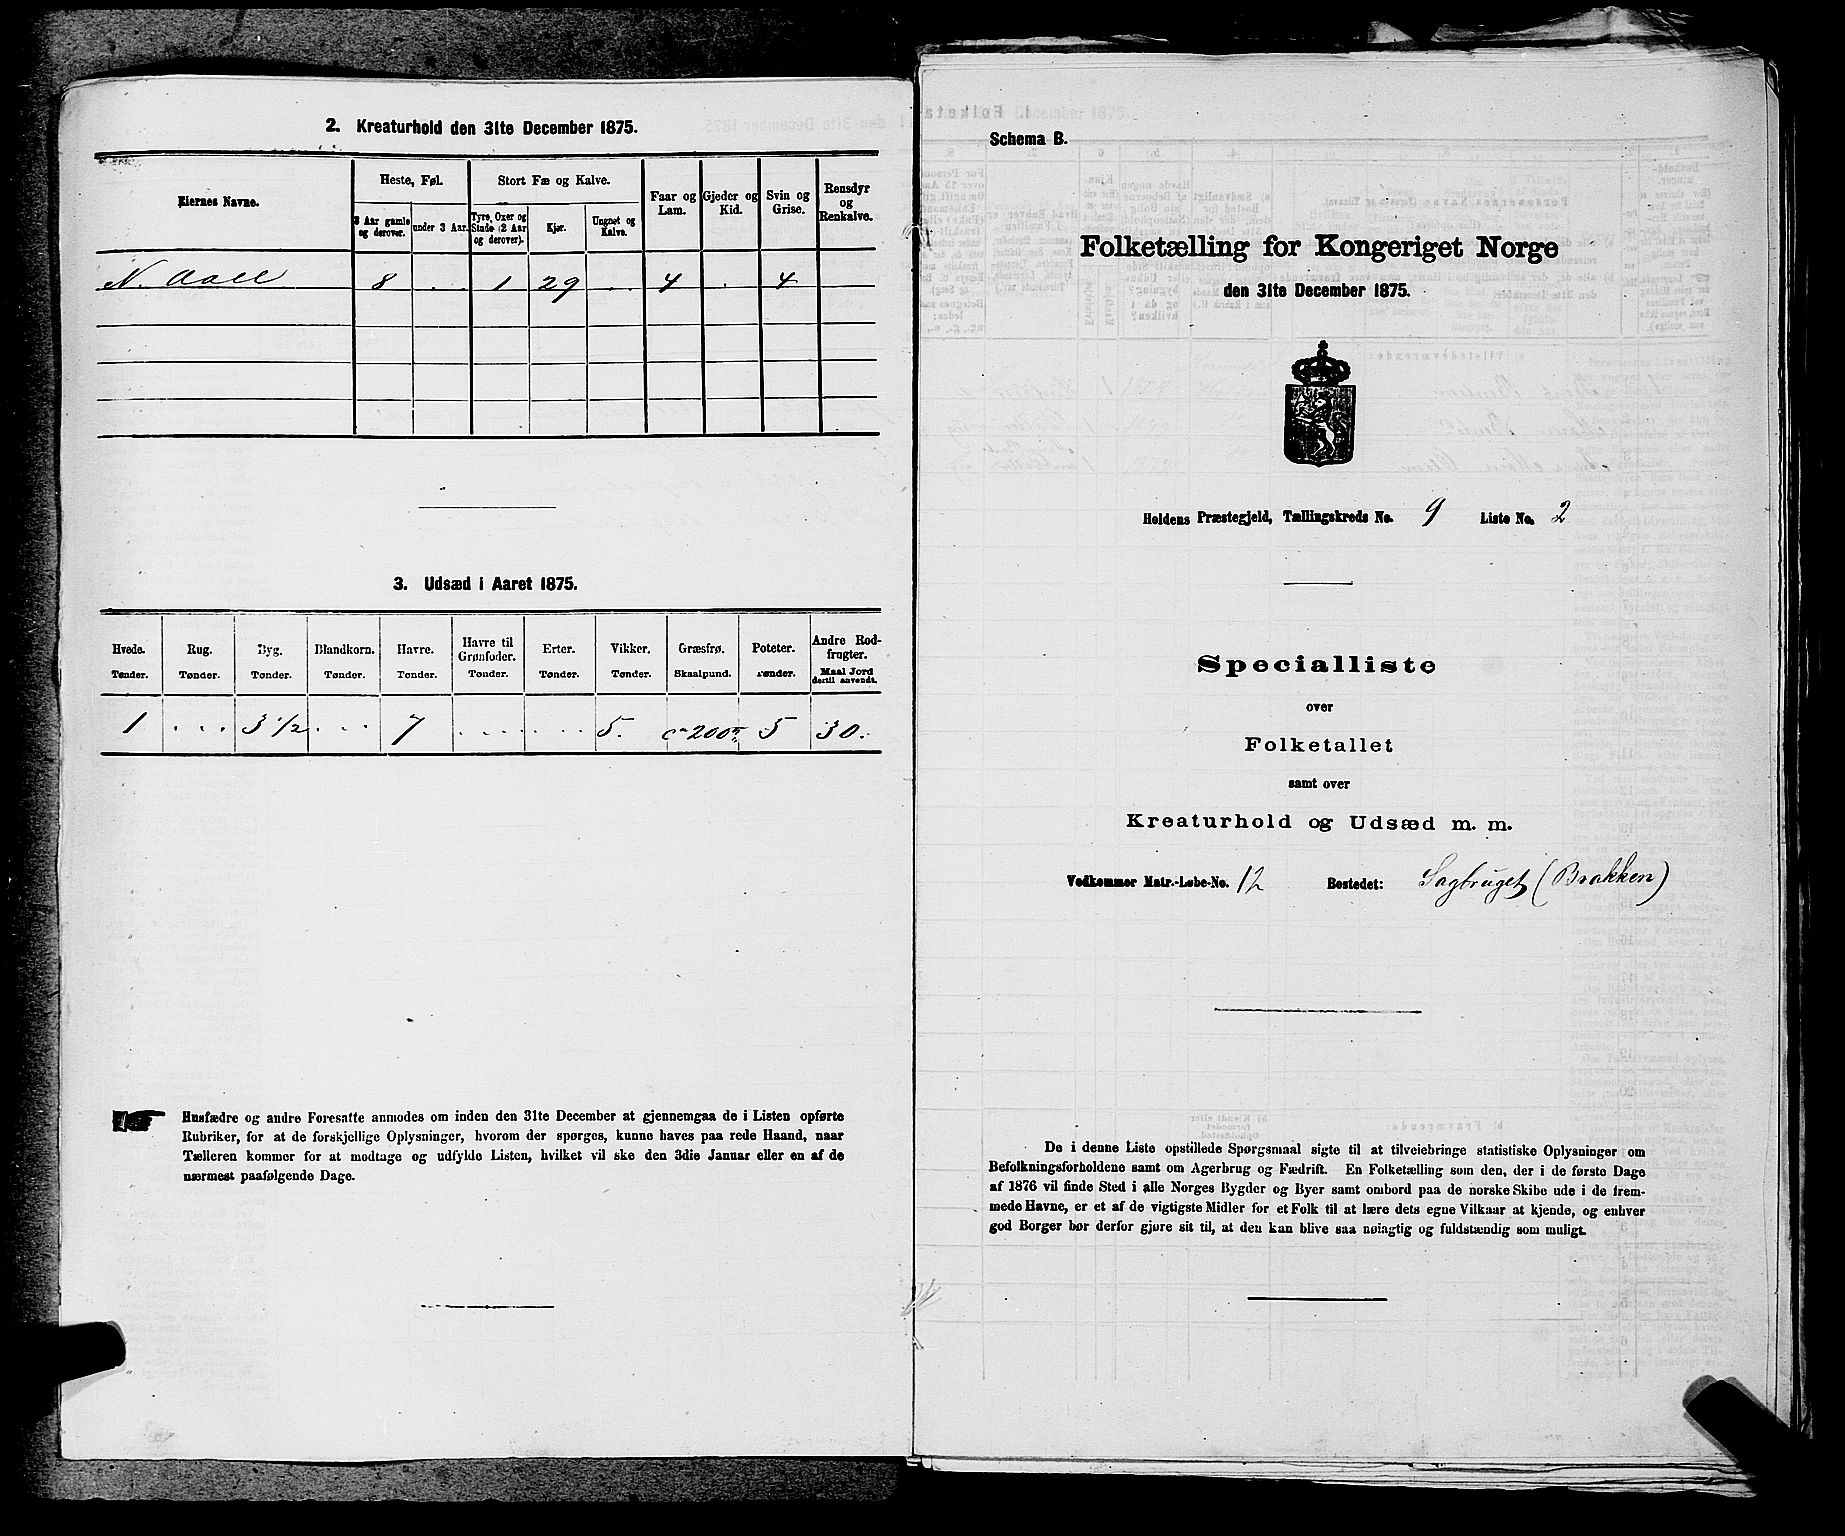 2. Kreaturhold den 31te December 1875.
Eiernes Navne.
Heste, Føl.
3 Aar gamle og derover.
under 3 Aar.
Stort Fæ og Kalve.
Tyre, Oxer og Stude (2 Aar og derover).
Kjør.
Ungnøt og Kalve.
Faar og Lam.
Gjeder og Kid.
Svin og Grise.
Rensdyr og Renkalve.
N. Aall 8 . . 1 29 . . 4 . 4
3. Udsæd i Aaret 1875.
Hvede. Rug. Byg. Blandkorn. Havre. Havre til Grønfoder. Erter. Vikker. Græsfrø. Poteter. Andre Rodfrugter.
Tønder. Tønder. Tønder. Tønder. Tønder. Tønder. Tønder. Tønder. Skaalpund. Tønder. Maal Jord dertil anvendt.
1 . . . 3 1/2 . . . 7 . . . . . . . 5. ca 200 5 30.
Husfædre og andre Foresatte anmodes om inden den 31te December at gjennemgaa de i Listen opførte
Rubriker, for at de forskjellige Oplysninger, hvorom der spørges, kunne haves paa rede Haand, naar
Tælleren kommer for at modtage og udfylde Listen, hvilket vil ske den 3die Januar eller en af de
nærmest paafølgende Dage.
Schema B.
Folketælling for Kongeriget Norge
den 31te December 1875.
Holdens Præstegjeld, Tællingskreds No. 9 Liste No. 2
Specialliste
over
Folketallet
samt over
Kreaturhold og Udsæd m. m.
Vedkommer Matr.-Løbe-No. 12 Bostedet: Sagbruget (Brakken)
De i denne Liste opstillede Spørgsmaal sigte til at tilveiebringe statistiske Oplysninger om
Befolkningsforholdene samt om Agerbrug og Fædrift. En Folketælling som den, der i de første Dage
af 1876 vil finde Sted i alle Norges Bygder og Byer samt ombord paa de norske Skibe ude i de frem-
mede Havne, er et af de vigtigste Midler for et Folk til at lære dets egne Vilkaar at kjende, og enhver
god Borger bør derfor gjøre sit til, at den kan blive saa nøiagtig og fuldstændig som muligt.